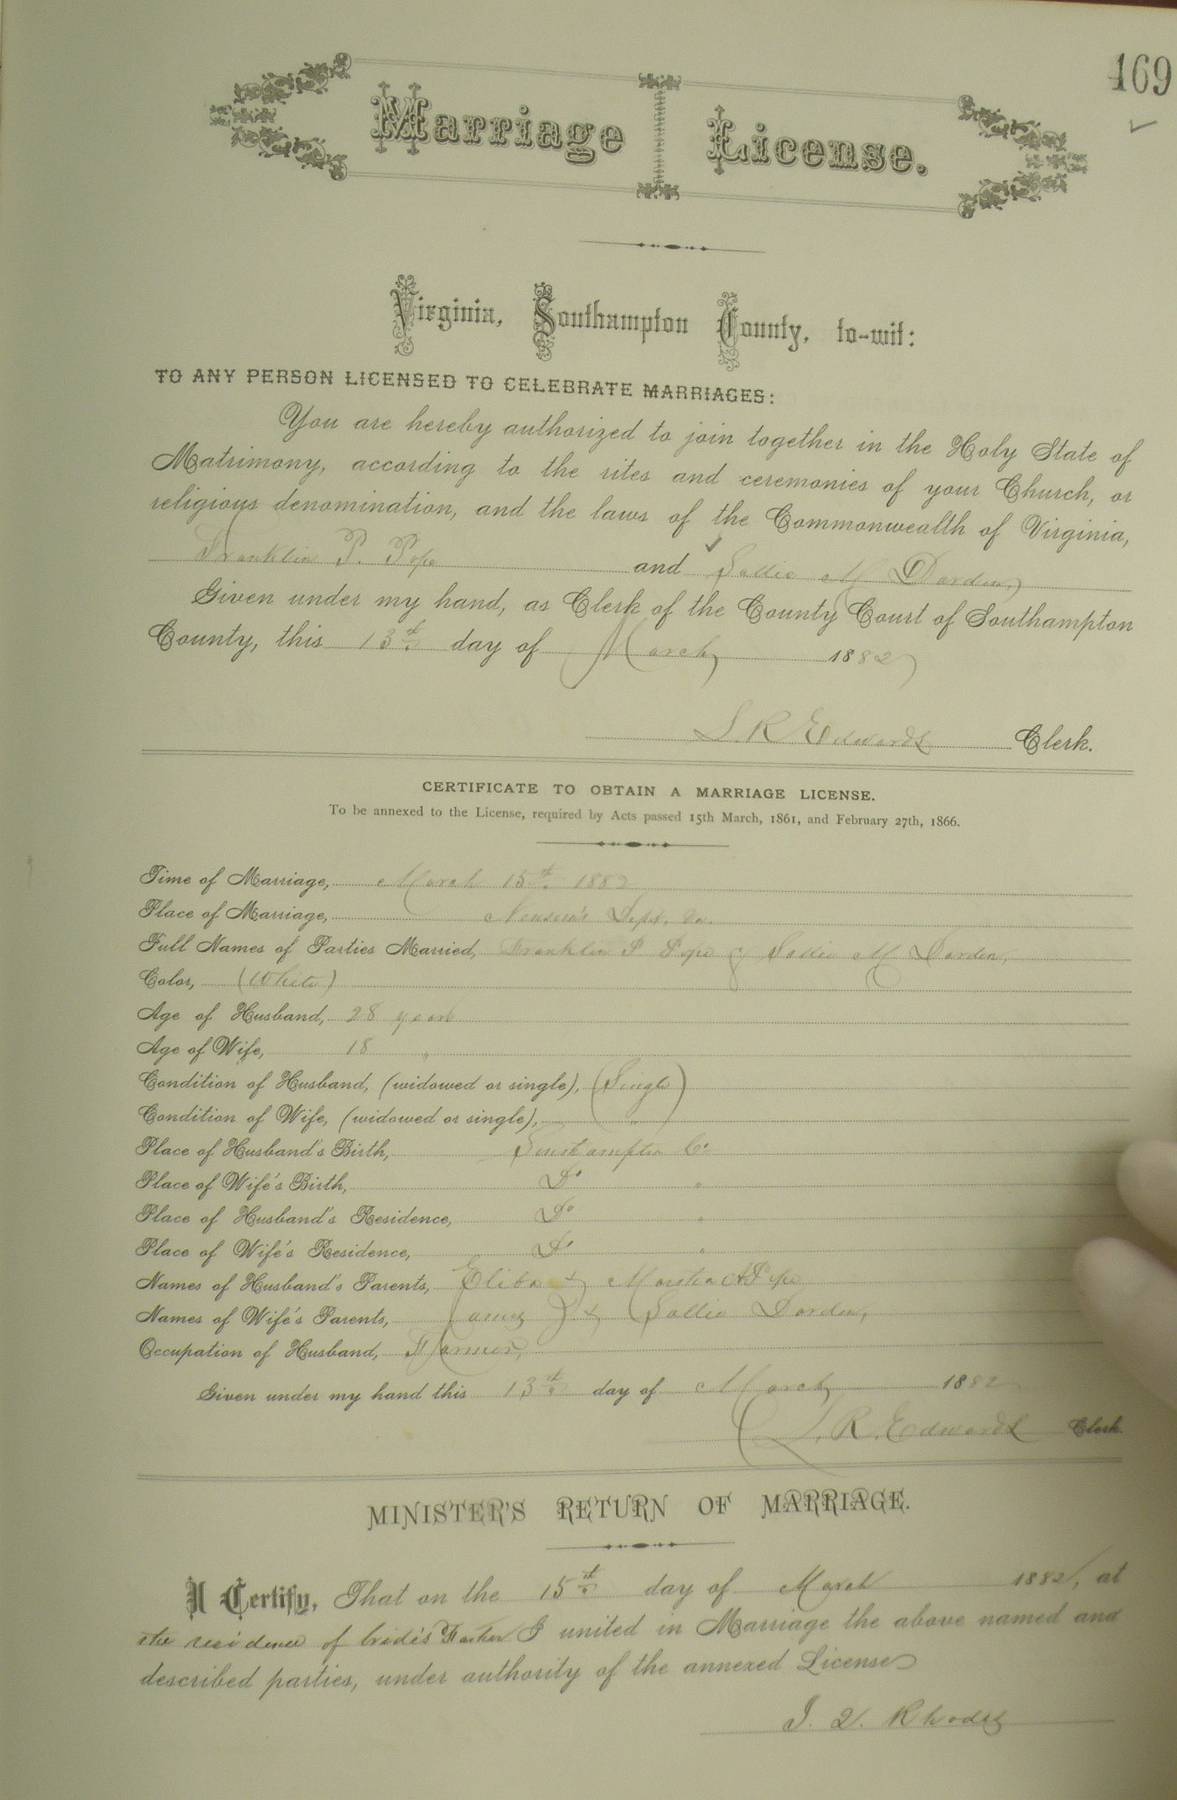 169
Marriage License.
Virginia, Southampton County, to-wit:
TO ANY PERSON LICENSED TO CELEBRATE MARRIAGES:
You are hereby authorized to join together in the Holy State of
Matrimony, according to the rites and ceremonies of your Church, or
religious denomination, and the laws of the Commonwealth of Virginia,
Franklin P. Pope and Sallie M Darden,
Given under my hand, as Clerk of the County Court of Southampton
County, this 13th day of March 1882
L. R. Edwards Clerk.
CERTIFICATE TO OBTAIN A MARRIAGE LICENSE.
To be annexed to the License, required by Acts passed 15th March, 1861, and February 27th, 1866.
Time of Marriage, March 15th 1882
Place of Marriage, Newsom's Depot, Va.
Full Names of Parties Married, Franklin P Pope & Sallie M Darden,
Color, (White)
Age of Husband, 28 years
Age of Wife, 18 "
Condition of Husband, (widowed or single), (Single)
Condition of Wife, (widowed or single), "
Place of Husband's Birth, Southampton Co
Place of Wife's Birth, Do "
Place of Husband's Residence, Do "
Place of Wife's Residence, Do "
Names of Husband's Parents, & Pope
Names of Wife's Parents, James & Sallie Darden,
Occupation of Husband, Farmer,
Given under my hand this 13th day of March 1882
L. R. Edwards Clerk.
MINISTER'S RETURN OF MARRIAGE.
I Certify, That on the 15th day of March 1882, at
the residence of bride's Father I united in Marriage the above named and
described parties, under authority of the annexed License
Rhodes